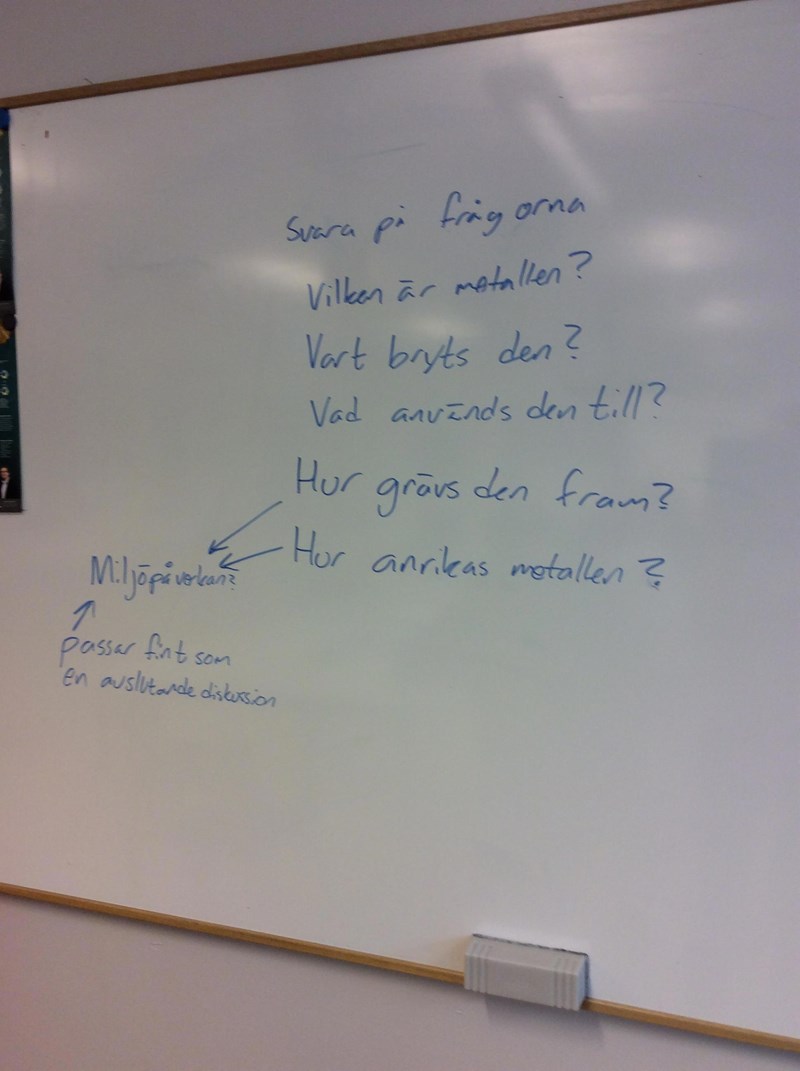 Svara på frågorna
Vilken är metallen?
Vart bryts den?
Vad används den till?
Hur grävs den fram?
Hur anrikas metallen?
Miljöpåverkan?
passar fint som
en avslutande diskussion